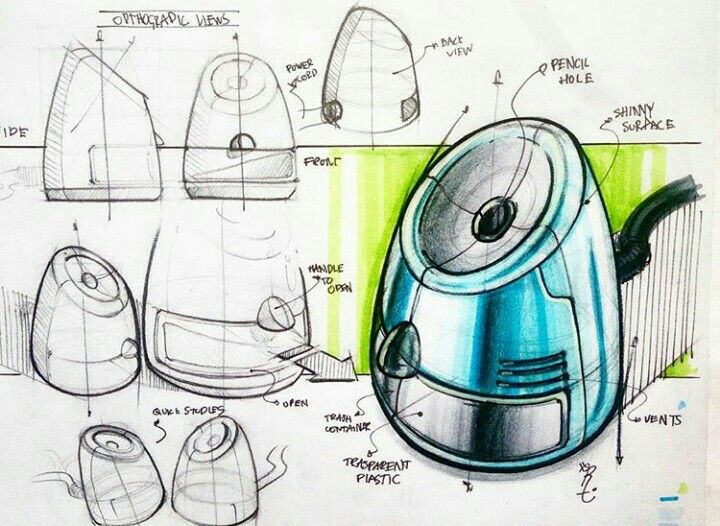 ORTHOGRAPIC VIEWS
POWER
CORD
BACK
VIEW
PENCIL
HOLE
SHINNY
SURFACE
IDE
FRONT
HANDLE
TO
OPEN
OPEN
QUICK STUDIES
TRASH
CONTAINER
TRASPARENT
PLASTIC
VENTS